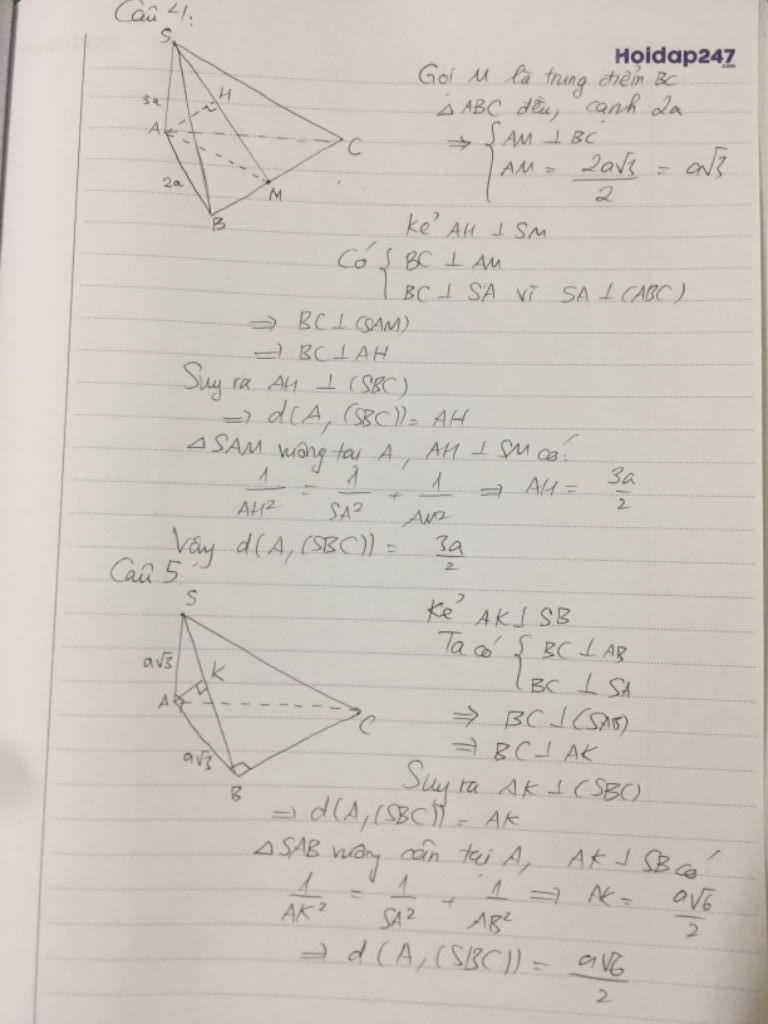 Câu 4:
Hoidap247
.com
S
3a
H
A
C
2a
M
B
Gọi M là trung điểm BC
△ABC đều, cạnh 2a
⇒ { AM ⊥ BC
AM = 2a√3/2 = a√3
Kẻ AH ⊥ SM
Có { BC ⊥ AM
BC ⊥ SA vì SA ⊥ (ABC)
⇒ BC ⊥ (SAM)
⇒ BC ⊥ AH
Suy ra AH ⊥ (SBC)
⇒ d(A, (SBC)) = AH
△SAM vuông tại A, AH ⊥ SM có:
1/AH² = 1/SA² + 1/AM² ⇒ AH = 3a/2
Vậy d(A, (SBC)) = 3a/2
Câu 5:
S
a√3
K
A
C
a√3
B
Kẻ AK ⊥ SB
Ta có { BC ⊥ AB
BC ⊥ SA
⇒ BC ⊥ (SAB)
⇒ BC ⊥ AK
Suy ra AK ⊥ (SBC)
⇒ d(A, (SBC)) = AK
△SAB vuông cân tại A, AK ⊥ SB có
1/AK² = 1/SA² + 1/AB² ⇒ AK = a√6/2
⇒ d(A, (SBC)) = a√6/2